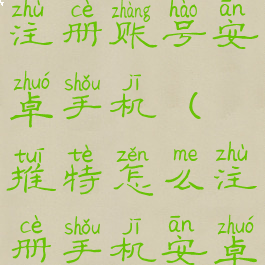 zhù cè zhàng hào ān
注册账号安
zhuó shǒu jī
卓手机（
tuī tè zěn me zhù
推特怎么注
cè shǒu jī ān zhuó
册手机安卓